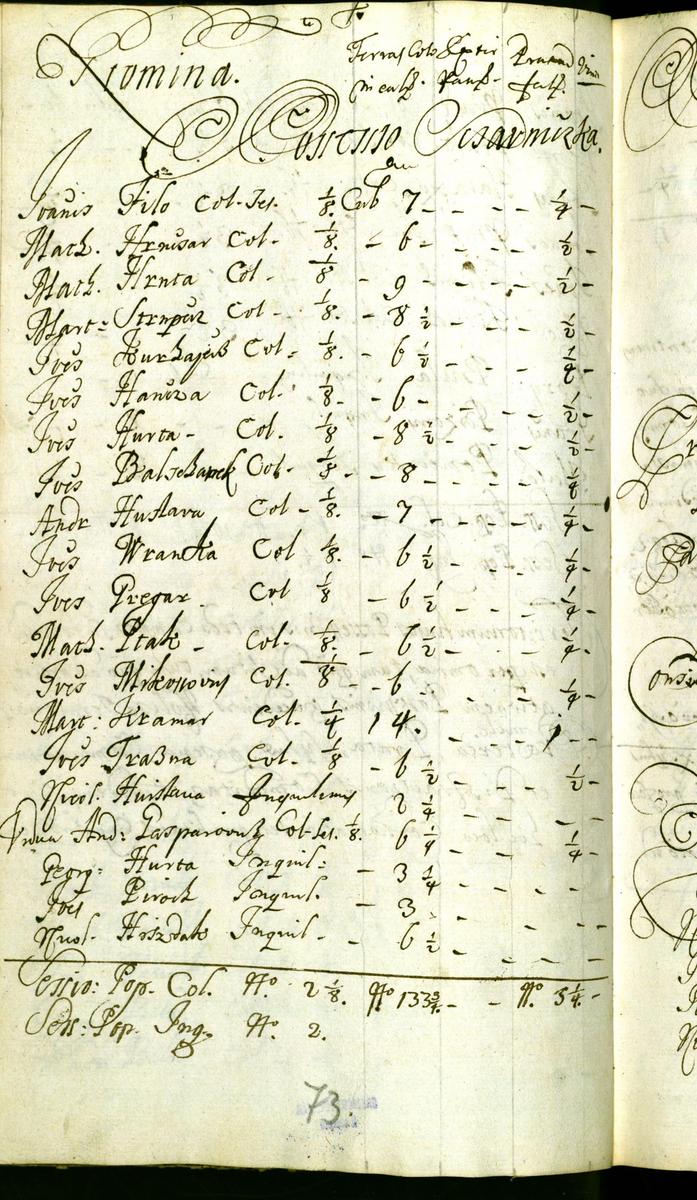 Nomina. Terras Cols Extir Pratum Vinea
in calp. Pans. falp.
Possessio Cisarnizka.
Joanis Filo Col. Ses. 1/8. Cub 7 - - - - 1/4 -
Math. Hrnisar Col - 1/8. - 6 - - - - 1/2 -
Math. Hrnta Col - 1/8 - 9 - - - 1/2 -
Mart: Col - 1/8. - 8 1/2 - - - 1/2 -
Jves Col - 1/8. - 6 1/2 - - - 1/4 -
Jves Hancza Col. 1/8. - 6 - - - - 1/2 -
Jves Hurta - Col. 1/8 - 8 1/2 - - - 1/2 -
Jves Balschanek Col - 1/8 - - 8 - - - 1/4 -
Andr Hustava Col - 1/8. - 7 - - - - 1/4 -
Jves Wranka Col 1/8. - 6 1/2 - - - 1/4 -
Jves Pregar Col 1/8 - 6 1/2 - - - 1/4 -
Math. Ptak - Col. 1/8. 6 1/2 - - - 1/4 -
Jves Col. 1/8 - 6 - - - 1/4 -
Mart: Kramar Col. 1/4 14. 1 - -
Jves Traßna Col. 1/8 - 6 1/2 - - - 1/2 -
Nicol. Huistava Inquilinus 2 1/4 - - - -
Vidua And: Gasparovitz Col. Ses. 1/8. 6 1/4 - - - 1/4 -
Georg: Hurta Inquil: - 3 1/4 - - - -
Jves Pirock Inquil. - 3 - - - -
Nicol. Inquil - - 6 1/2 - - - -
Sessio: Pop. Col. No. 2 1/8. No 133 3/4. - - No. 5 1/4. -
Sess: Pop. Inq. No. 2.
73.